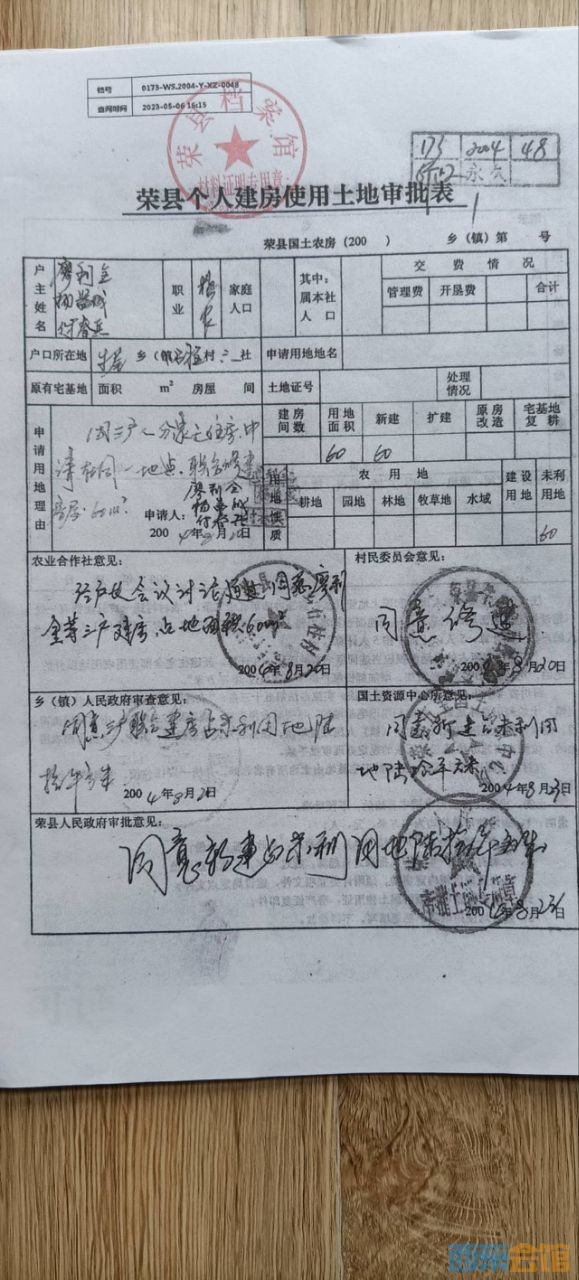 档号 0173-WS.2004-Y-XZ-0048
查阅时间 2023-05-06 16:15
荣县档案馆
材料证明专用章
173 2004 48
永久
荣县个人建房使用土地审批表
荣县国土农房(200 ) 乡(镇)第 号
户主姓名 廖利全 职业 家庭人口 其中:属本社人口 交费情况
管理费 开垦费 合计
户口所在地 乡(镇) 村 社 申请用地地名
原有宅基地 面积 m² 房屋 间 土地证号 处理情况
申请用地理由 建房间数 用地面积 新建 扩建 原房改造 宅基地复耕
60 60
请在同一地点,联合修建
用地性质 农用地 建设用地 未利用地
耕地 园地 林地 牧草地 水域
60
申请人: 廖利全
2004年8月20日
农业合作社意见: 村民委员会意见:
经户代会议讨论通过,同意廖利
全等三户建房,占地面积60m²
同意修建
2004年8月20日 2004年8月20日
乡(镇)人民政府审查意见: 国土资源中心所意见:
同意三户联合建房占未利用地陆
拾平方米 2004年8月21日
同意新建占未利用
地陆拾平方米
2004年8月23日
荣县人民政府审批意见:
同意新建占未利用地陆拾平方米
2004年8月23日
西祠会馆